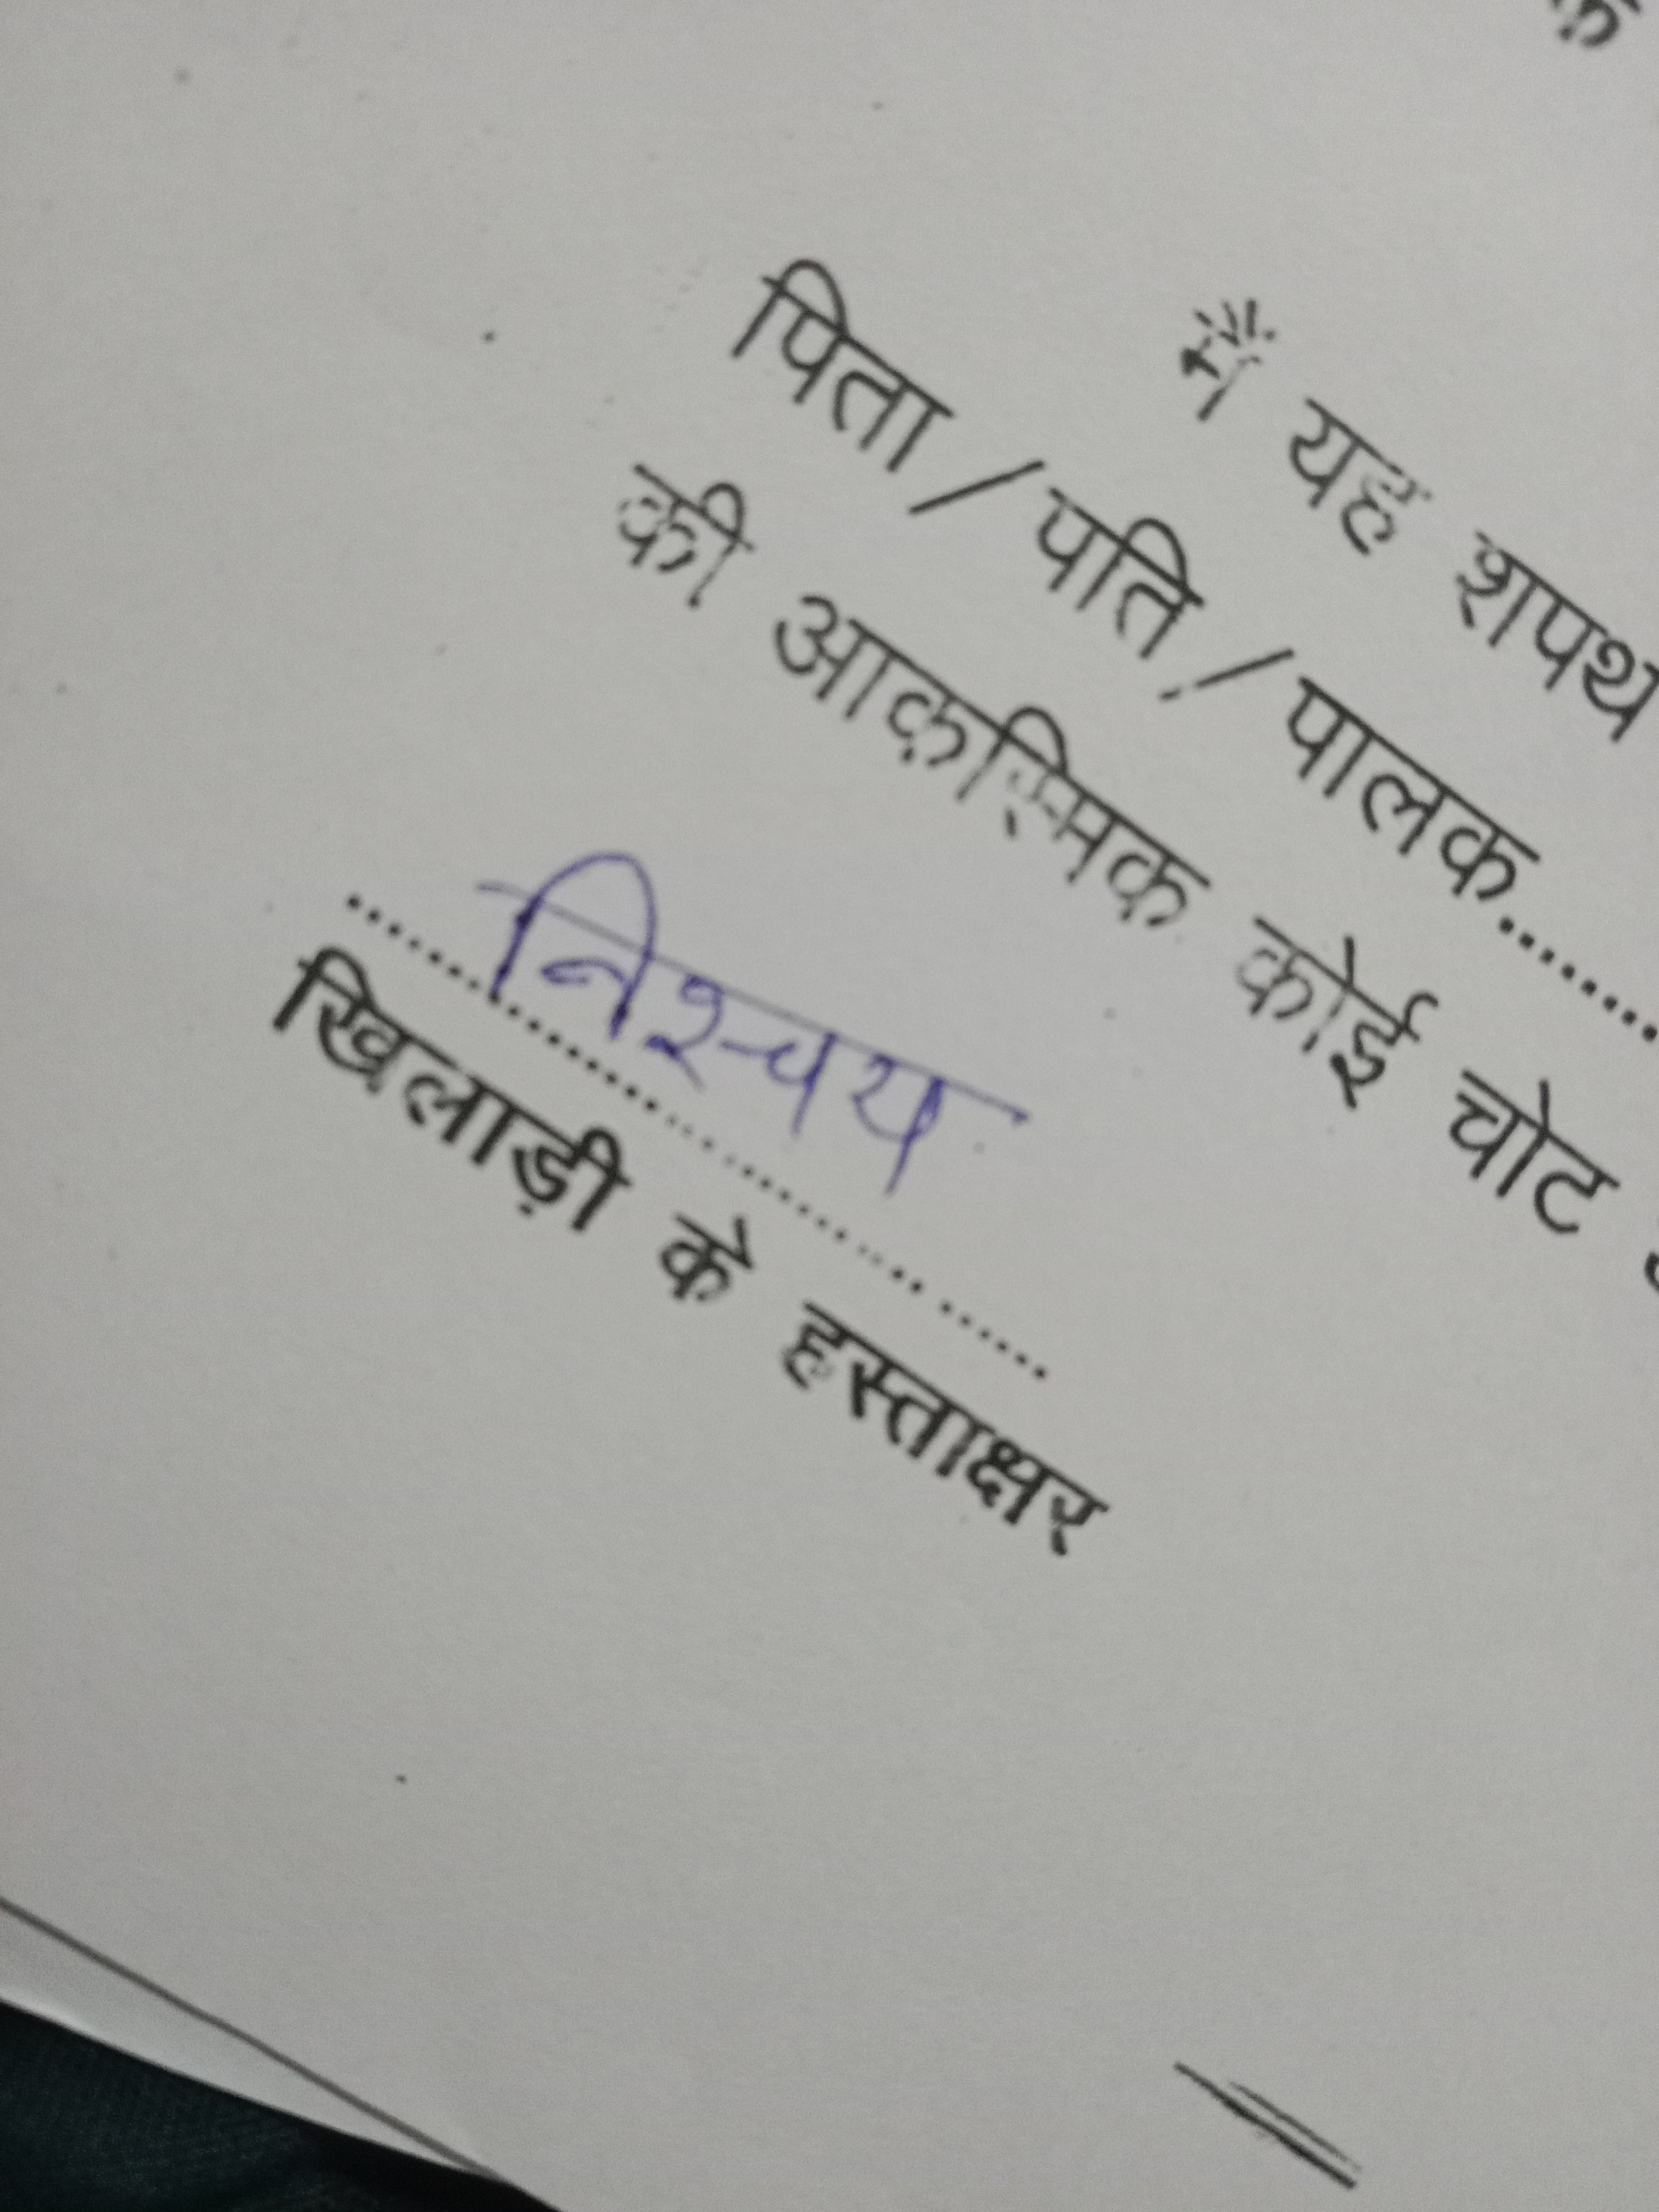 मैं यह शपथ
पिता / पति / पालक..........
की आकस्मिक कोई चोट
निश्चय
खिलाड़ी के हस्ताक्षर